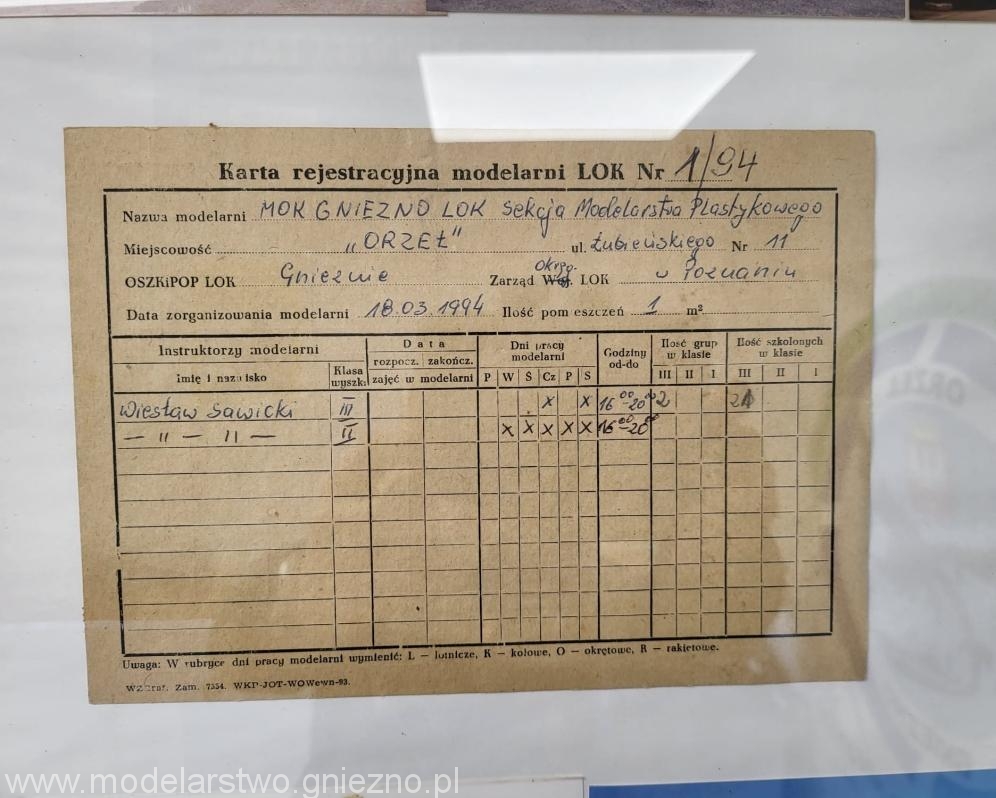 Karta rejestracyjna modelarni LOK Nr 1/94
Nazwa modelarni MOK GNIEZNO LOK Sekcja Modelarstwa Plastykowego
Miejscowość „ORZEŁ” ul. Łubieńskiego Nr 11
OSZKiPOP LOK Gnieznie Zarząd Okręg. LOK w Poznaniu
Data zorganizowania modelarni 18.03.1994 Ilość pom eszczeń 1 m²
Instruktorzy modelarni Data Dni pracy modelarni Godziny od-do Ilość grup w klasie Ilość szkolonych w klasie
imię i nazwisko Klasa wyszk. rozpocz. zakończ. zajęć w modelarni P W Ś Cz P S III II I III II I
Wiesław Sawicki III x x 16⁰⁰-20⁰⁰ 2
— 〃 — 〃 — II x x x x x 16⁰⁰-20⁰⁰
Uwaga: W rubryce dni pracy modelarni wymienić: L — lotnicze, K — kołowe, O — okrętowe, R — rakietowe.
Zam. 7554. WKP-JOT-WOWewn-93.
www.modelarstwo.gniezno.pl